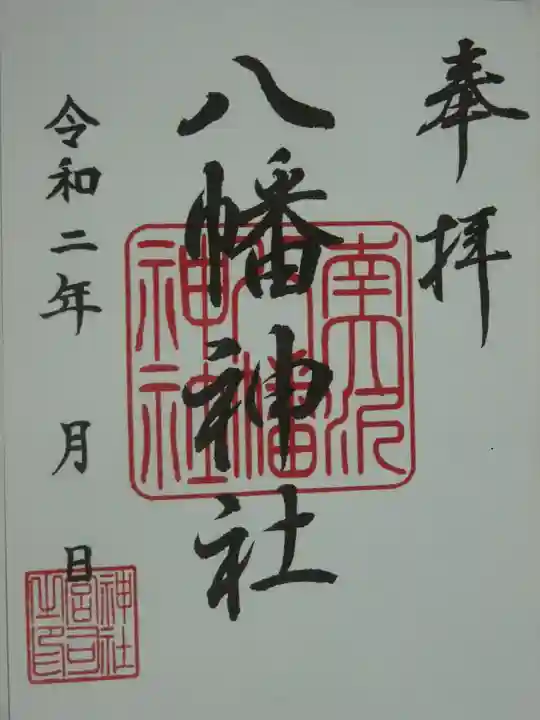 奉拝
八幡神社
令和二年 月 日
南大沢
八幡
神社
神社
宮司
之印